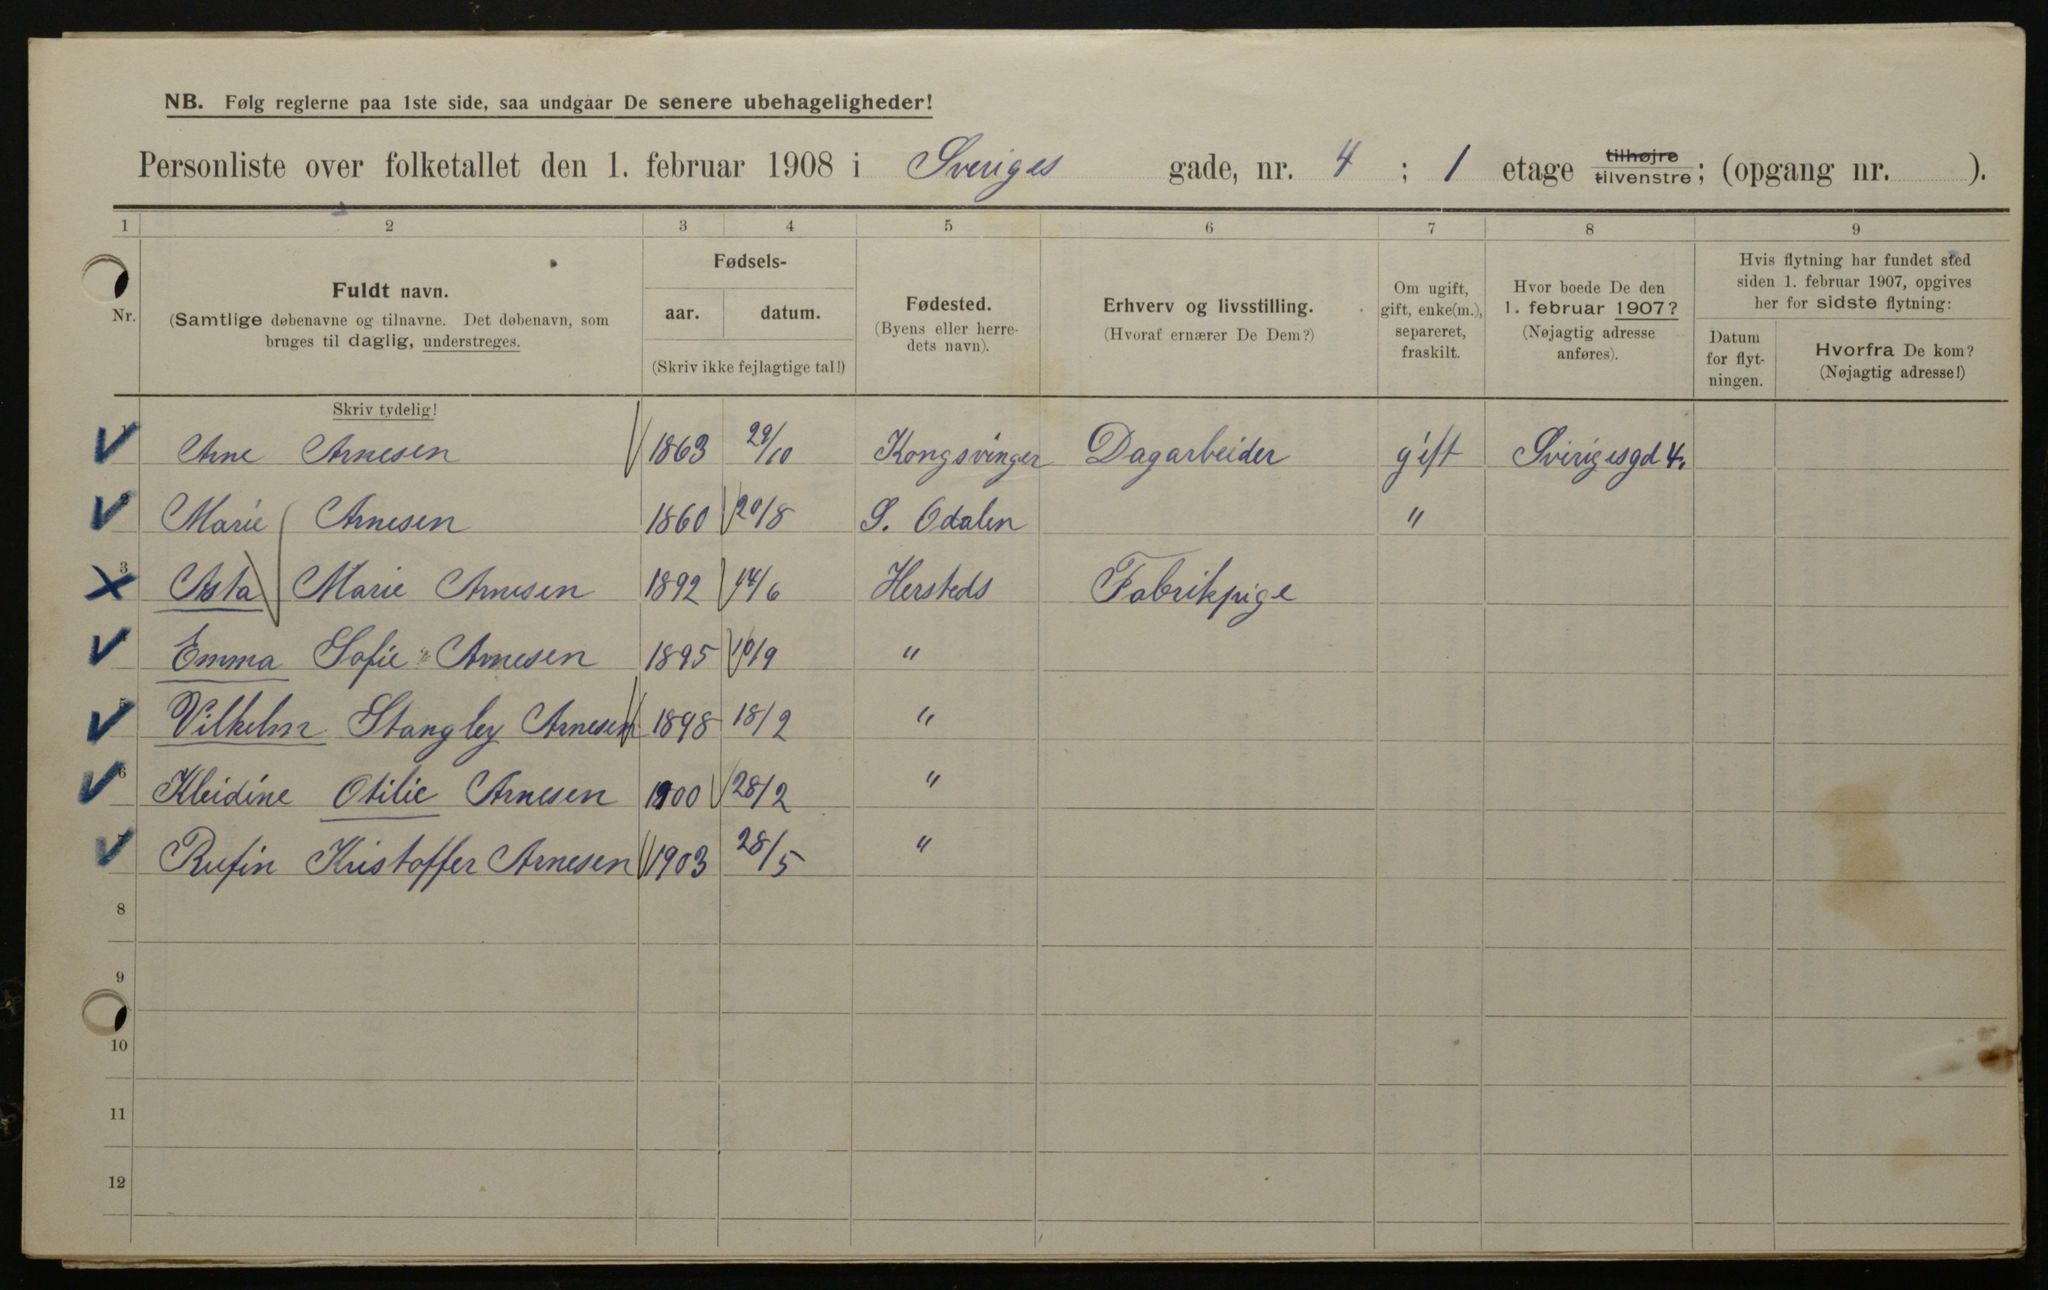 NB. Følg reglerne paa 1ste side, saa undgaar De senere ubehageligheder!
Personliste over folketallet den 1. februar 1908 i Sveriges gade, nr. 4 ; 1 etage tilhøjre tilvenstre ; (opgang nr. ).
1 2 3 4 5 6 7 8 9
Nr.
Fuldt navn.
(Samtlige døbenavne og tilnavne. Det døbenavn, som
bruges til daglig, understreges.
Skriv tydelig!
Fødsels-
aar. datum.
(Skriv ikke fejlagtige tal!)
Fødested.
(Byens eller herre-
dets navn).
Erhverv og livsstilling.
(Hvoraf ernærer De Dem?)
Om ugift,
gift, enke(m.),
separeret,
fraskilt.
Hvor boede De den
1. februar 1907?
(Nøjagtig adresse
anføres).
Hvis flytning har fundet sted
siden 1. februar 1907, opgives
her for sidste flytning:
Datum
for flyt-
ningen.
Hvorfra De kom?
(Nøjagtig adresse!)
1 Arne Arnesen 1863 29/10 Kongsvinger Dagarbeider gift Sverigesgd 4.
2 Marie Arnesen 1860 20/8 S. Odalen "
3 Asta Marie Arnesen 1892 14/6 Hersteds Fabrikpige
4 Emma Sofie Arnesen 1895 10/9 "
5 Vilhelm Stangley Arnesen 1898 18/2 "
6 Kleidine Otilie Arnesen 1900 28/2 "
7 Rufin Kristoffer Arnesen 1903 28/5 "
8
9
10
11
12